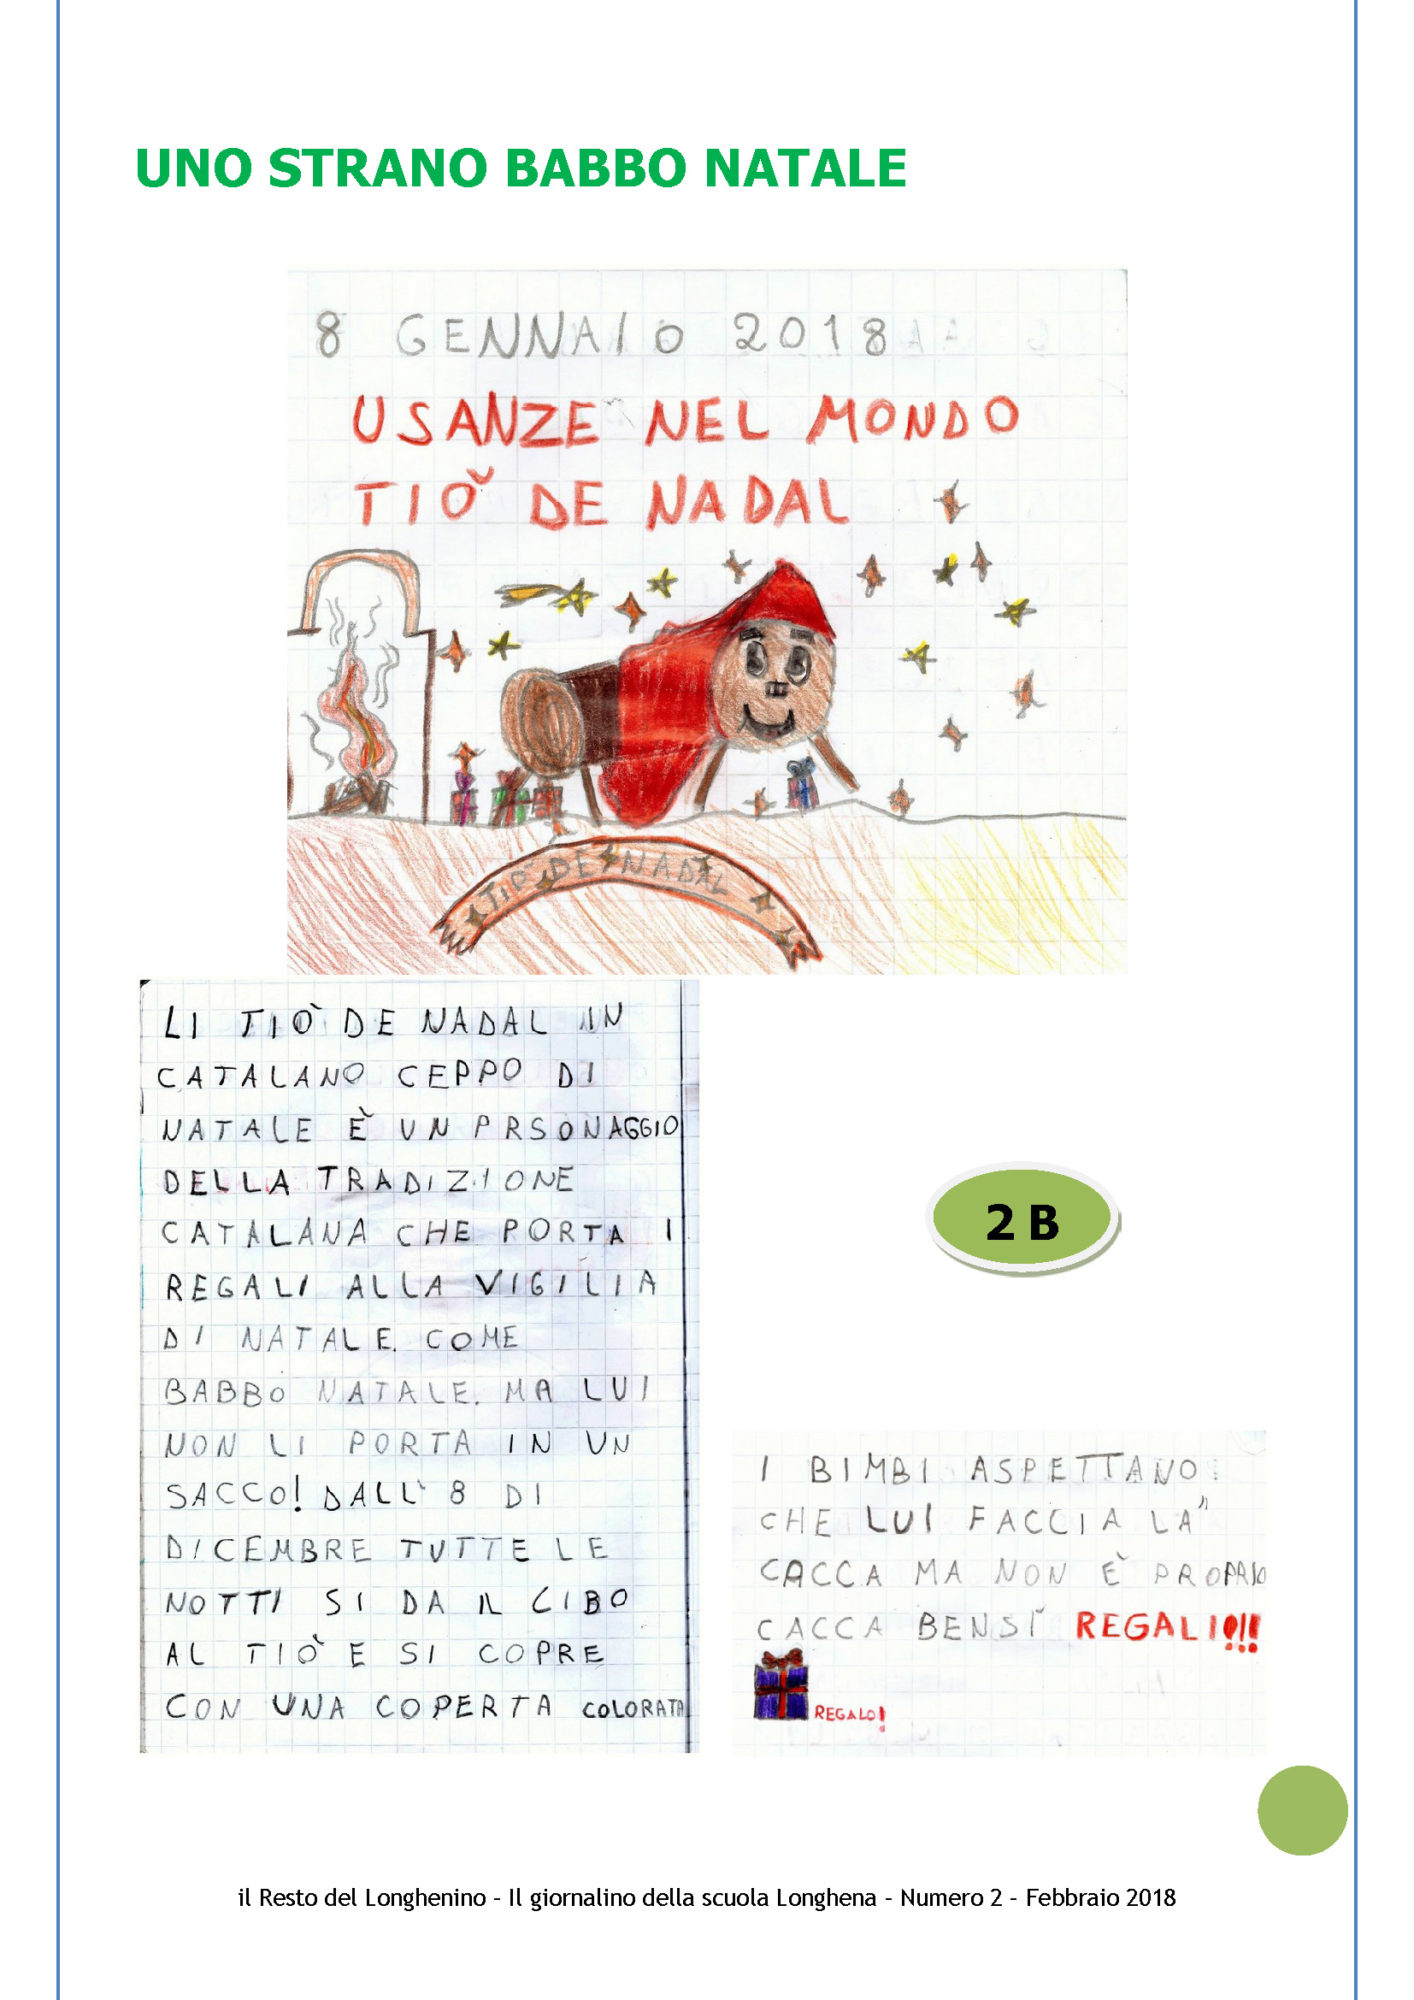 UNO STRANO BABBO NATALE
8 GENNAIO 2018
USANZE NEL MONDO
TIÒ DE NADAL
TIÒ DE NADAL
LI TIÒ DE NADAL IN
CATALANO CEPPO DI
NATALE È UN PRSONAGGIO
DELLA TRADIZIONE
CATALANA CHE PORTA I
REGALI ALLA VIGILIA
DI NATALE. COME
BABBO NATALE. MA LUI
NON LI PORTA IN UN
SACCO! DALL' 8 DI
DICEMBRE TUTTE LE
NOTTI SI DA IL CIBO
AL TIÒ E SI COPRE
CON UNA COPERTA COLORATA
2 B
I BIMBI ASPETTANO
CHE LUI FACCIA LA"
CACCA MA NON È PROPRIO
CACCA BENSÌ REGALI!!!
REGALO!
il Resto del Longhenino – Il giornalino della scuola Longhena – Numero 2 – Febbraio 2018